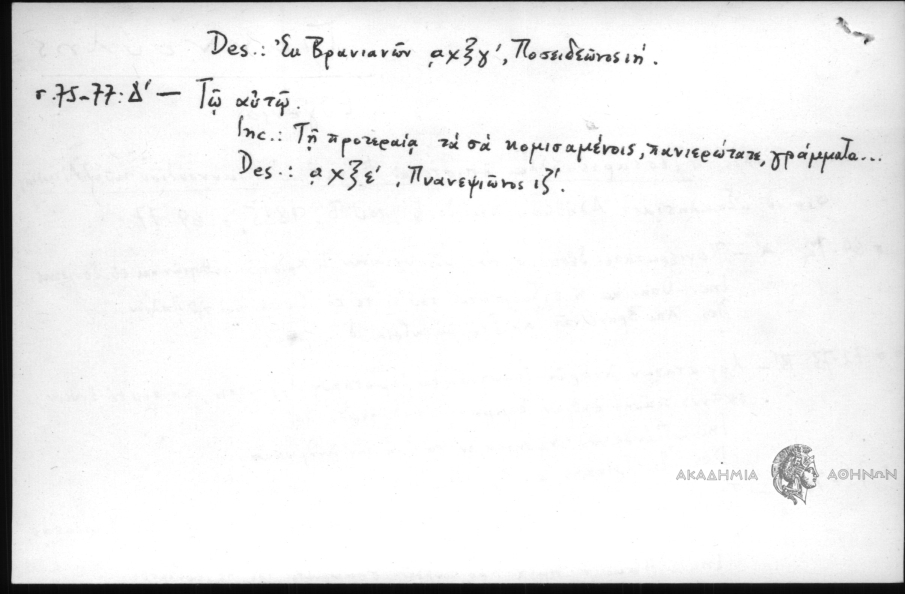 Des.: Ἐκ Βρανιανῶν ͵αχξγ', Ποσειδεῶνος ιή.
σ.75-77: Δ' — Τῷ αὐτῷ.
Inc.: Τῇ προτεραίᾳ τά σά κομισαμένοις, πανιερώτατε, γράμματα...
Des.: ͵αχξε', Πυανεψιῶνος ιζ'.
ΑΚΑΔΗΜΙΑ ΑΘΗΝΩΝ